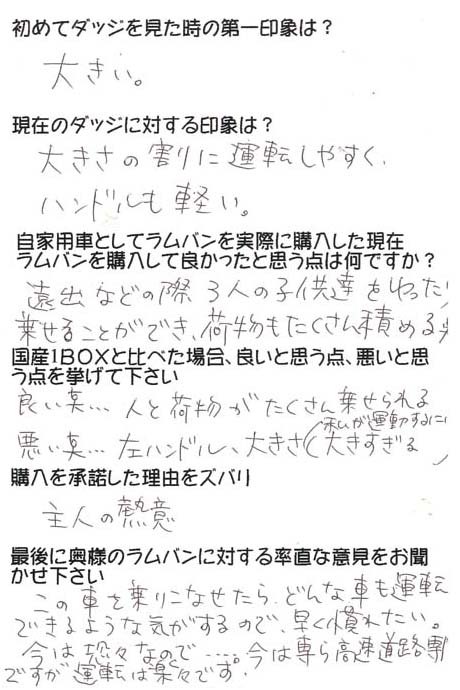 初めてダッジを見た時の第一印象は？
大きい。
現在のダッジに対する印象は？
大きさの割りに運転しやすく、
ハンドルも軽い。
自家用車としてラムバンを実際に購入した現在
ラムバンを購入して良かったと思う点は何ですか？
遠出などの際 3人の子供達をゆった
乗せることができ、荷物もたくさん積める
国産1BOXと比べた場合、良いと思う点、悪いと思
う点を挙げて下さい
良い点… 人と荷物がたくさん乗せられる
私が運動するに
悪い点… 左ハンドル、大きさ(大きすぎる)
購入を承諾した理由をズバリ
主人の熱意
最後に奥様のラムバンに対する率直な意見をお聞
かせ下さい
この車を乗りこなせたら、どんな車も運転
できるような気がするので、早く慣れたい。
今は恐々なので……。今は専ら高速道路専
ですが運転は楽々です。